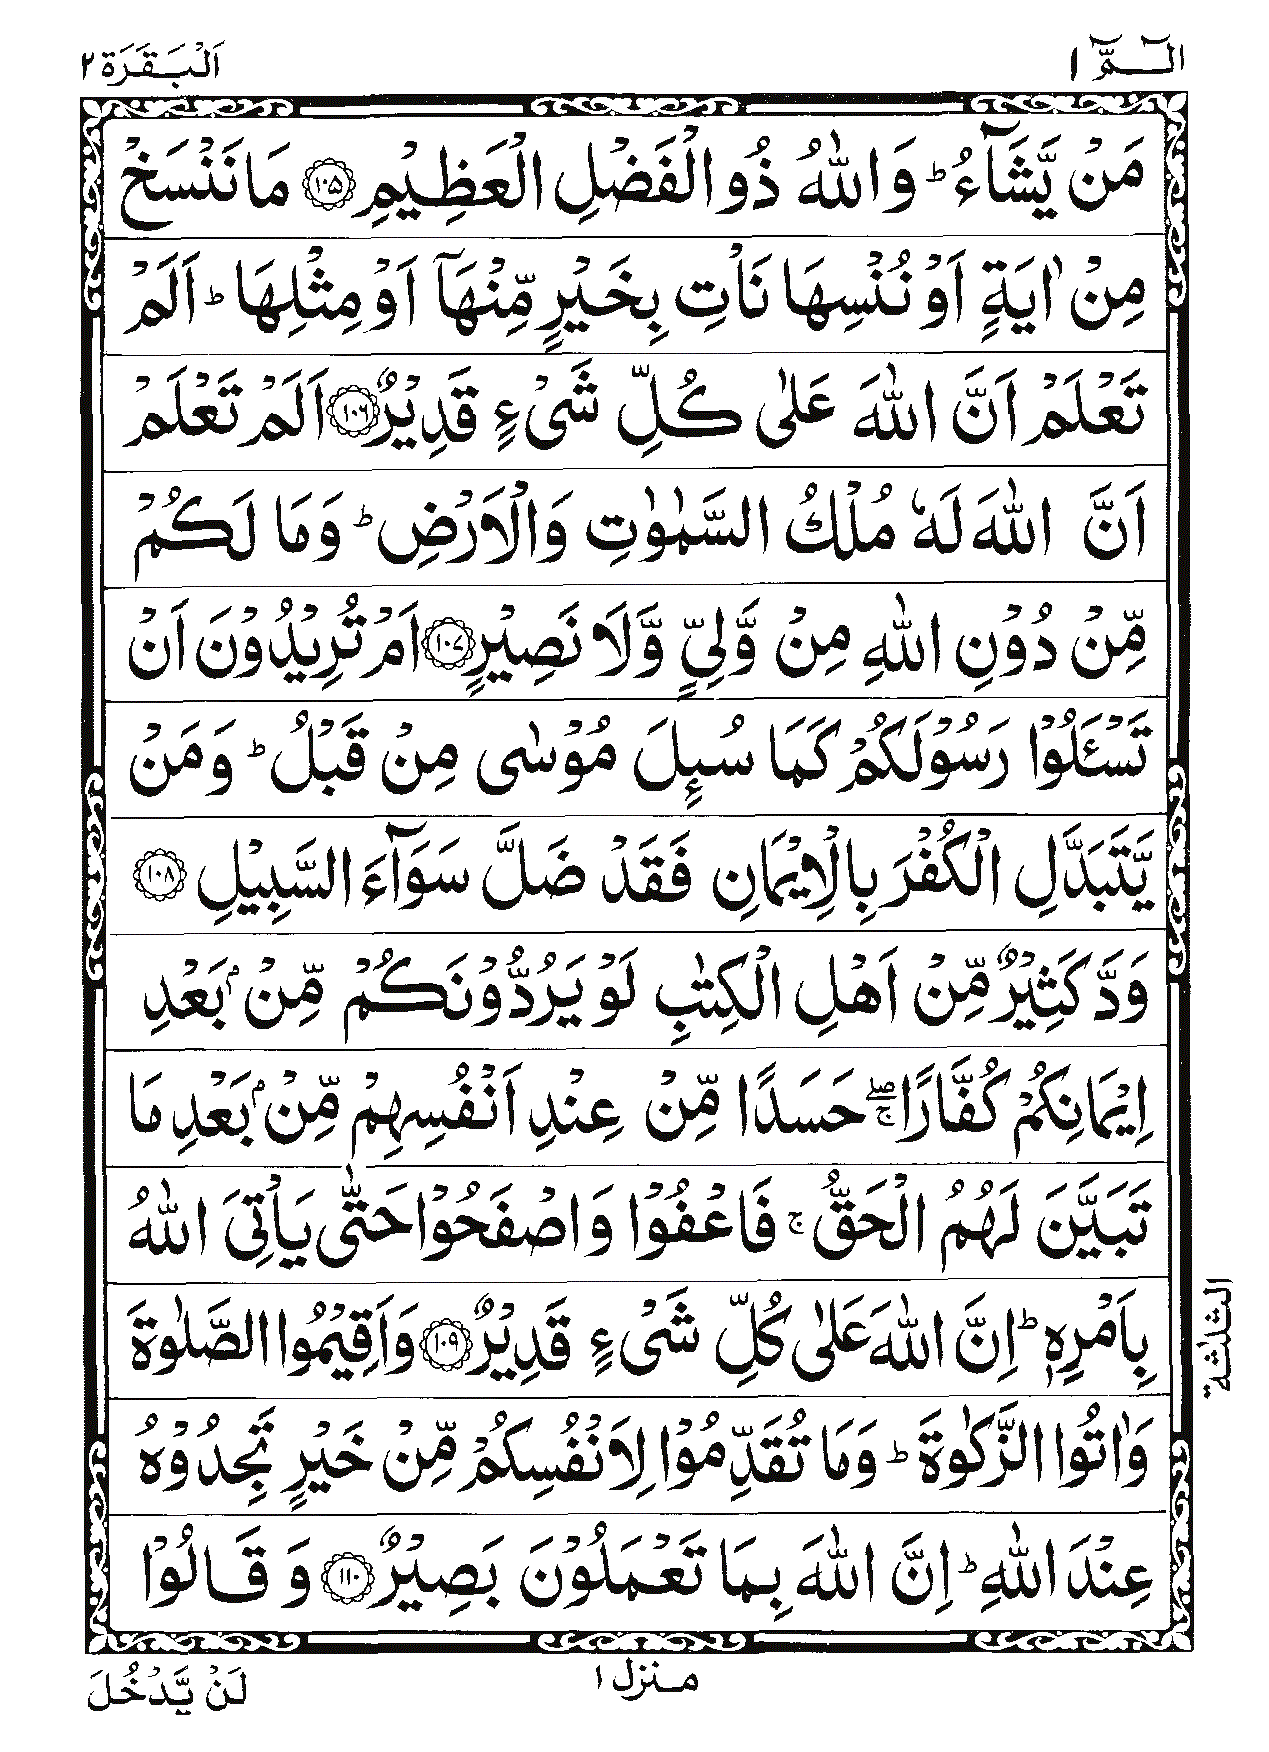 الٓـمّٓ ١
اَلْبَـقَـرَة ٢
مَنْ يَّشَآءُ ؕ وَاللّٰهُ ذُو الْفَضْلِ الْعَظِيْمِ ۝١٠٥ مَا نَنْسَخْ
مِنْ اٰيَةٍ اَوْ نُنْسِهَا نَاْتِ بِخَيْرٍ مِّنْهَآ اَوْ مِثْلِهَا ؕ اَلَمْ
تَعْلَمْ اَنَّ اللّٰهَ عَلٰى كُلِّ شَىْءٍ قَدِيْرٌ ۝١٠٦ اَلَمْ تَعْلَمْ
اَنَّ اللّٰهَ لَهٗ مُلْكُ السَّمٰوٰتِ وَالْاَرْضِ ؕ وَمَا لَكُمْ
مِّنْ دُوْنِ اللّٰهِ مِنْ وَّلِيٍّ وَّلَا نَصِيْرٍ ۝١٠٧ اَمْ تُرِيْدُوْنَ اَنْ
تَسْـَٔلُوْا رَسُوْلَكُمْ كَمَا سُىِٕلَ مُوْسٰى مِنْ قَبْلُ ؕ وَمَنْ
يَّتَبَدَّلِ الْكُفْرَ بِالْاِيْمَانِ فَقَدْ ضَلَّ سَوَآءَ السَّبِيْلِ ۝١٠٨
وَدَّ كَثِيْرٌ مِّنْ اَهْلِ الْكِتٰبِ لَوْ يَرُدُّوْنَكُمْ مِّنْۢ بَعْدِ
اِيْمَانِكُمْ كُفَّارًا ۖۚ حَسَدًا مِّنْ عِنْدِ اَنْفُسِهِمْ مِّنْۢ بَعْدِ مَا
تَبَيَّنَ لَهُمُ الْحَقُّ ۚ فَاعْفُوْا وَاصْفَحُوْا حَتّٰى يَاْتِىَ اللّٰهُ
بِاَمْرِهٖ ؕ اِنَّ اللّٰهَ عَلٰى كُلِّ شَىْءٍ قَدِيْرٌ ۝١٠٩ وَاَقِيْمُوا الصَّلٰوةَ
الثلٰثة
وَاٰتُوا الزَّكٰوةَ ؕ وَمَا تُقَدِّمُوْا لِاَنْفُسِكُمْ مِّنْ خَيْرٍ تَجِدُوْهُ
عِنْدَ اللّٰهِ ؕ اِنَّ اللّٰهَ بِمَا تَعْمَلُوْنَ بَصِيْرٌ ۝١١٠ وَقَالُوْا
منزل ١
لَنْ يَّدْخُلَ